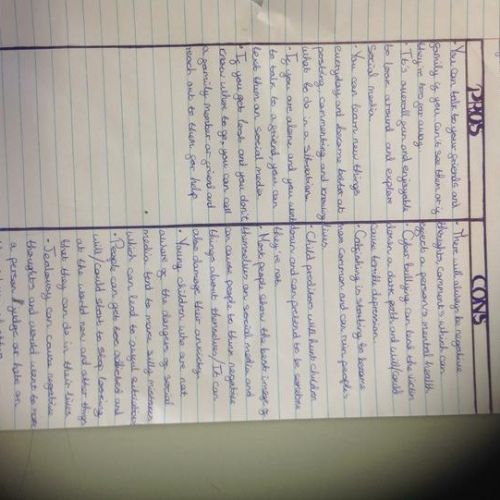 PROS
• You can talk to your friends and
family if you can't see them or if
they're too far away.
• It's overall fun and enjoyable
to look around and explore
social media
• You can learn new things
everyday and become better at
posting, commenting and knowing
what to do in a situations.
• If you are alone and you want
to talk to a friend, you can
text them on social media
• If you get lost and you don't
know where to go, you can call
a family member or friend and
reach out to them for help
CONS
• There will always be negative
thoughts, comments which can
affect a person's mental health
• Cyber bullying can lead the victim
down a dark path and will/could
cause terrible depression.
• Catfishing is starting to become
more common and can ruin people's
lives
• Child predators will hunt children
down and can pretend to be someone
they're not
• Most people show the best image of
themselves on social media and
can cause people to think negative
things about themselves/It can
also damage their anxiety.
• Young children who are not
aware of the dangers of social
media tend to make silly mistakes
which can lead to awful situations
• People can get too addicted and
will/could start to stop looking
at the world now and other things
that they can do in their lives
• Jealousy can cause negative
thoughts and would want to make
a person judge or hate on